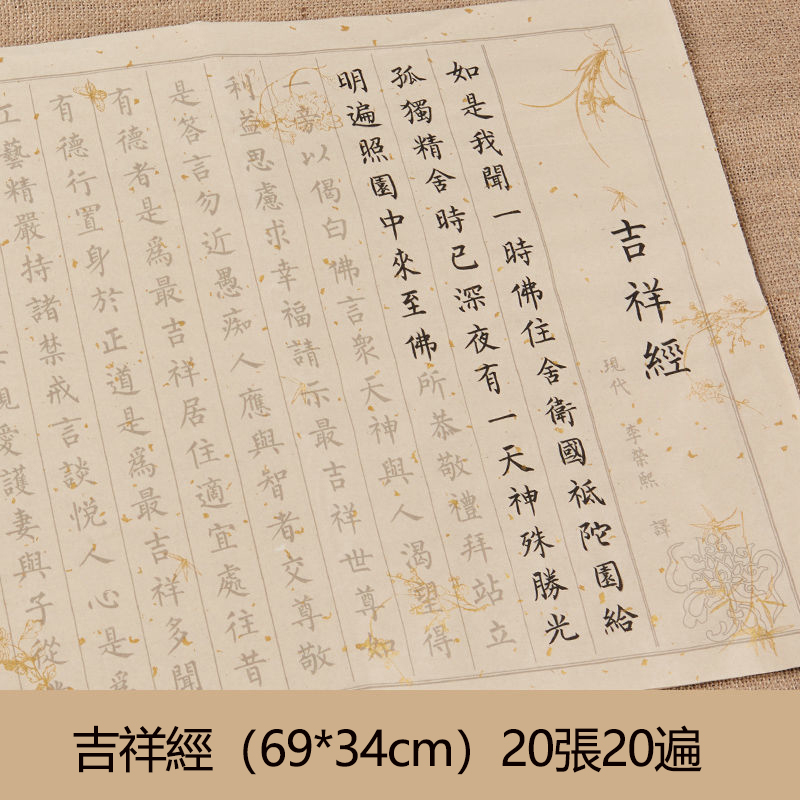 吉祥經
現代 李榮熙 譯
如是我聞一時佛住舍衛國祇陀園給
孤獨精舍時已深夜有一天神殊勝光
明遍照園中來至佛所恭敬禮拜站立
一旁以偈白佛言衆天神與人渴望得
利益思慮求幸福請示最吉祥世尊如
是答言勿近愚痴人應與智者交尊敬
有德者是爲最吉祥居住適宜處往昔
有德行置身於正道是爲最吉祥多聞
工藝精嚴持諸禁戒言談悅人心是爲
親愛護妻與子從
吉祥經（69*34cm）20張20遍